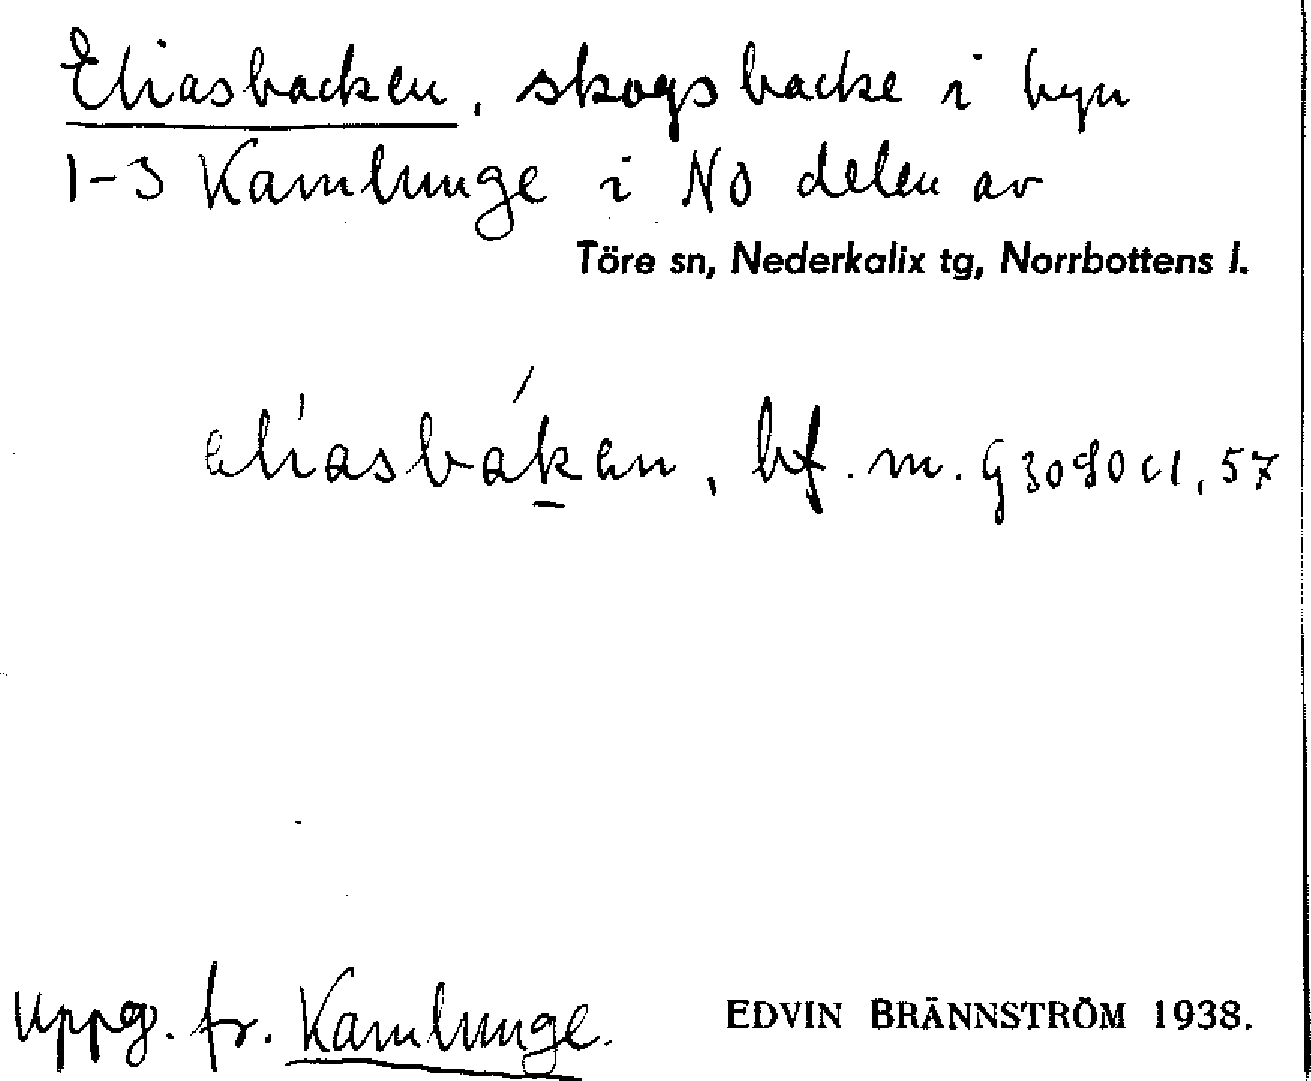 Eliasbacken, skogsbacke i byn
1-3 Kamlunge i NO delen av
Töre sn, Nederkalix tg, Norrbottens l.
eliasbáken, bf. m.
Uppg. fr. Kamlunge.
EDVIN BRÄNNSTRÖM 1938.